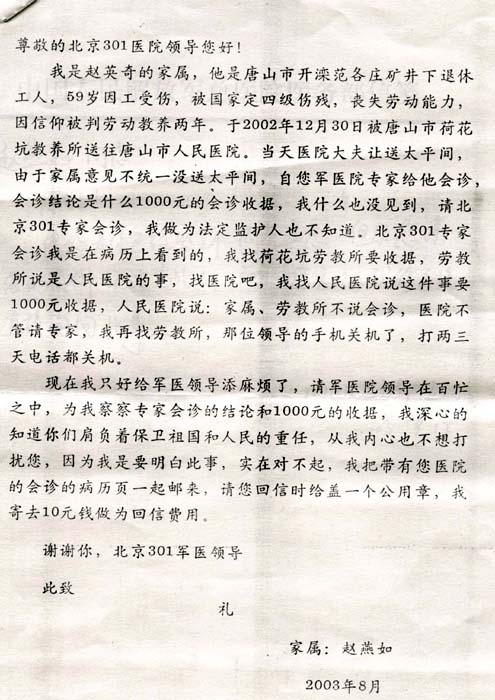 尊敬的北京301医院领导您好！
我是赵英奇的家属，他是唐山市开滦范各庄矿井下退休
工人，59岁因工受伤，被国家定四级伤残，丧失劳动能力，
因信仰被判劳动教养两年。于2002年12月30日被唐山市荷花
坑教养所送往唐山市人民医院。当天医院大夫让送太平间，
由于家属意见不统一没送太平间，自您军医院专家给他会诊，
会诊结论是什么1000元的会诊收据，我什么也没见到，请北
京301专家会诊，我做为法定监护人也不知道。北京301专家
会诊我是在病历上看到的，我找荷花坑劳教所要收据，劳教
所说是人民医院的事，找医院吧，我找人民医院说这件事要
1000元收据，人民医院说：家属、劳教所不说会诊，医院不
管请专家，我再找劳教所，那位领导的手机关机了，打两三
天电话都关机。
现在我只好给军医领导添麻烦了，请军医院领导在百忙
之中，为我察察专家会诊的结论和1000元的收据，我深心的
知道你们肩负着保卫祖国和人民的重任，从我内心也不想打
扰您，因为我是要明白此事，实在对不起，我把带有您医院
的会诊的病历页一起邮来，请您回信时给盖一个公用章，我
寄去10元钱做为回信费用。
谢谢你，北京301军医领导
此致
礼
家属：赵燕如
2003年8月